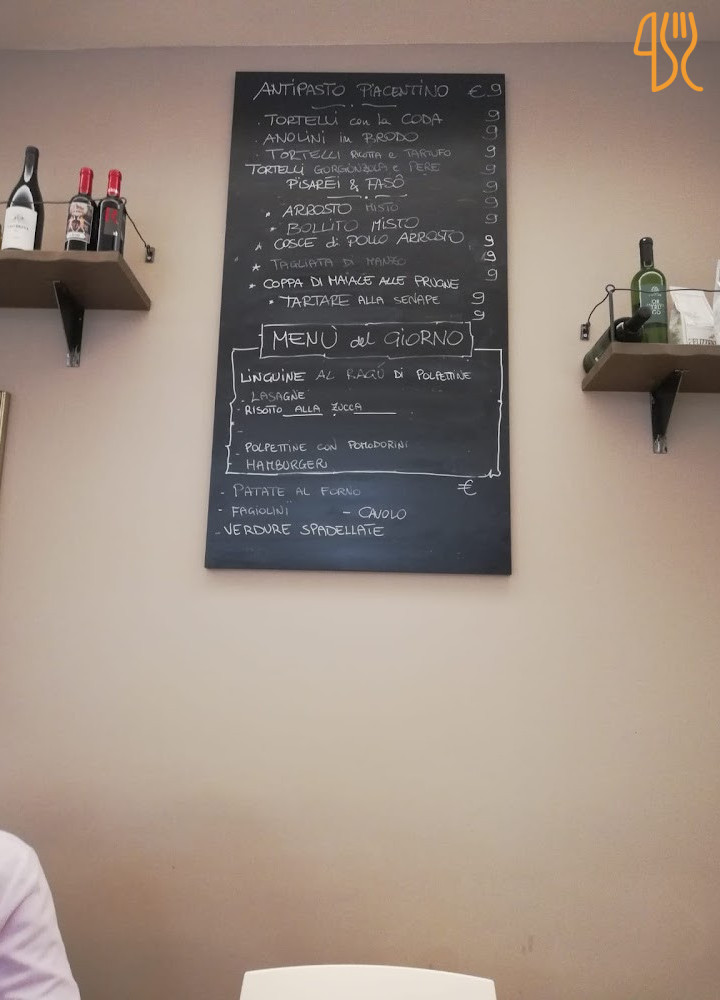 ANTIPASTO PIACENTINO €9
· TORTELLI con la CODA 9
· ANOLINI in BRODO 9
· TORTELLI RICOTTA e TARTUFO 9
TORTELLI GORGONZOLA e PERE 9
PISARÉI & FASÔ 9
* ARROSTO MISTO 9
* BOLLITO MISTO 9
* COSCE di POLLO ARROSTO 9
* TAGLIATA DI MANZO 9
* COPPA DI MAIALE ALLE PRUGNE 9
* TARTARE ALLA SENAPE 9
9
MENÙ del GIORNO
LINGUINE AL RAGÙ DI POLPETTINE
- LASAGNE
- RISOTTO ALLA ZUCCA
-
- POLPETTINE CON POMODORINI
- HAMBURGER
€
- PATATE AL FORNO
- FAGIOLINI - CAVOLO
- VERDURE SPADELLATE